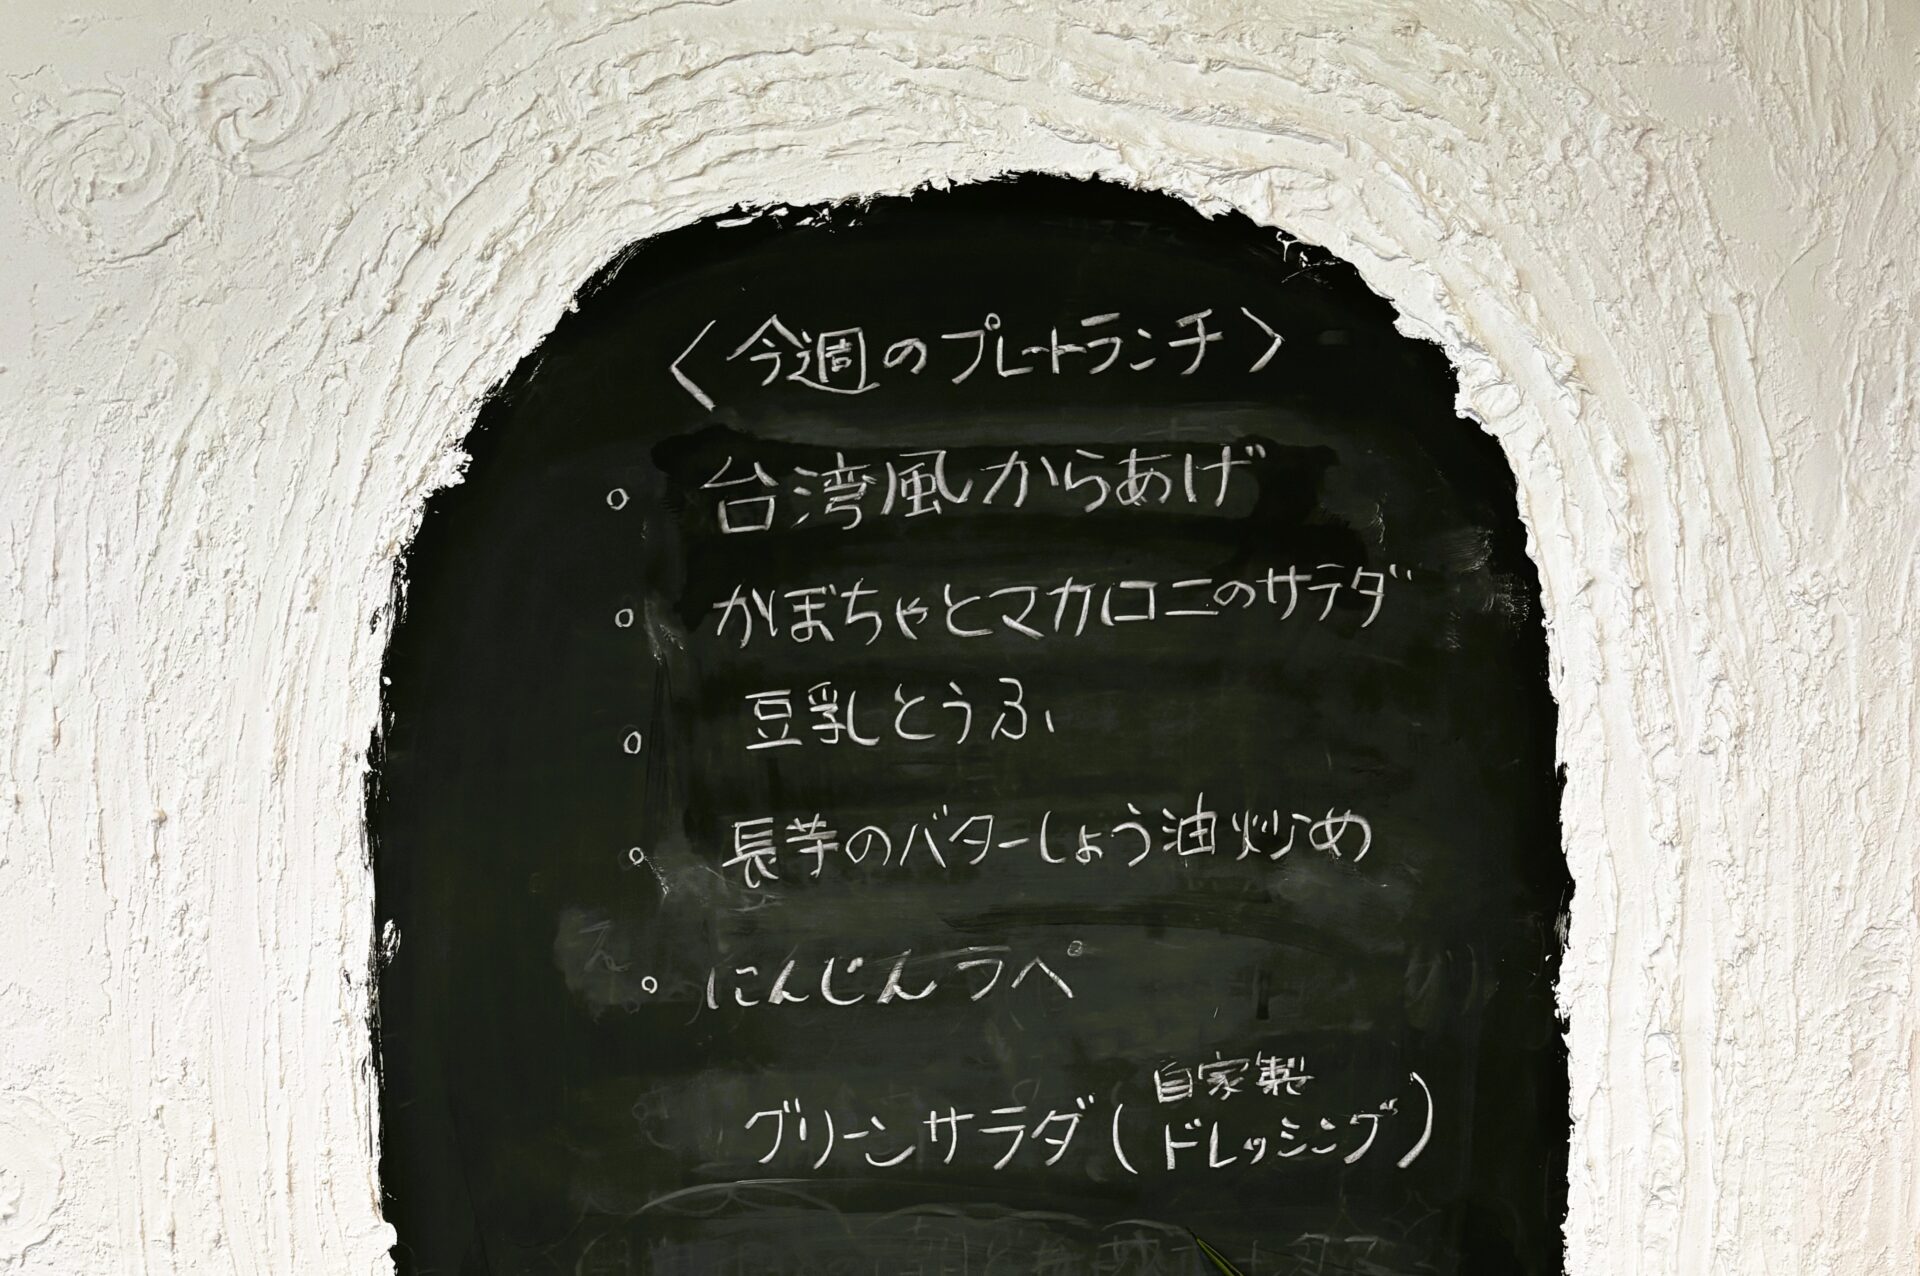 〈今週のプレートランチ〉
○ 台湾風からあげ
○ かぼちゃとマカロニのサラダ
○ 豆乳とうふ
○ 長芋のバターしょう油炒め
○ にんじんラペ
グリーンサラダ(自家製ドレッシング)